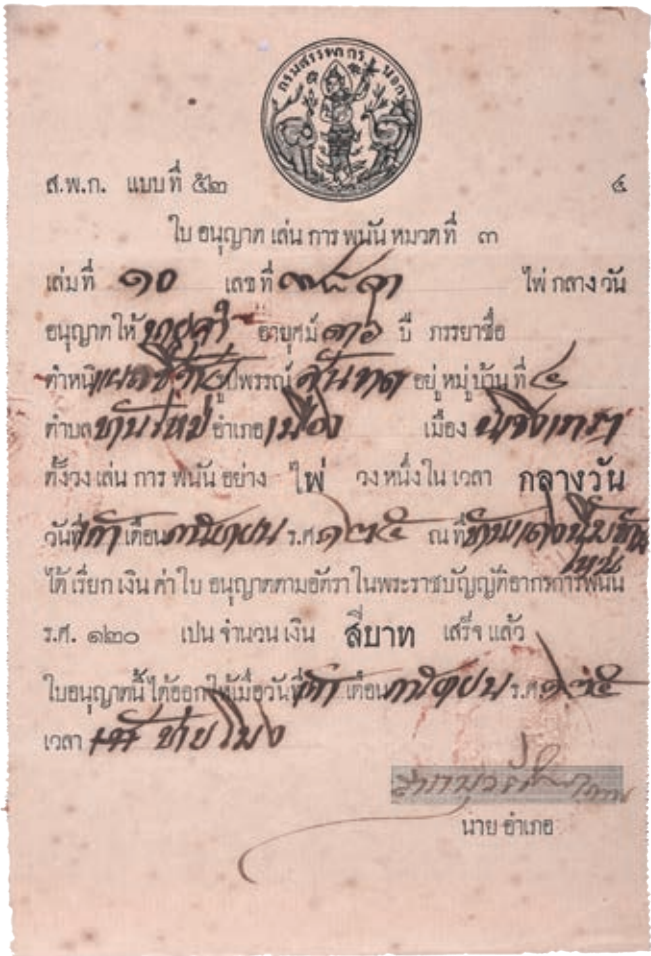 กรมสรรพากรนอก
ส.พ.ก. แบบที่ ๕๒ ๔
ใบ อนุญาต เล่น การ พนัน หมวดที่ ๓
เล่มที่ ๑๐ เลขที่ ไพ่ กลาง วัน
อนุญาตให้ อายุศม์ ๓๖ ปี ภรรยาชื่อ
ตำหนิ รูปพรรณ์ สันทัด อยู่ หมู่ บ้าน ที่ ๔
ตำบล บ้านใหม่ อำเภอ เมือง เมือง
ตั้งวง เล่น การ พนัน อย่าง ไพ่ วง หนึ่ง ใน เวลา กลางวัน
วันที่ เก้า เดือน กันยายน ร.ศ. ๑๒๕ ณ ที่
ใหม่
ได้ เรียก เงิน ค่า ใบ อนุญาตตาม อัตรา ในพระราชบัญญัติอากรการพนัน
ร.ศ. ๑๒๐ เปน จำนวน เงิน สี่บาท เสร็จ แล้ว
ใบอนุญาตนี้ ได้ออกให้เมื่อวันที่ เก้า เดือน กันยายน ร.ศ. ๑๒๕
เวลา บ่าย โมง
นาย อำเภอ